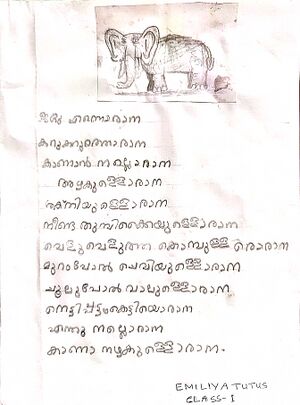 കറുകറുത്തൊരാന
കാണാൻ നല്ലൊരാന
അഴകുള്ളൊരാന
നീണ്ട തുമ്പിക്കൈയുള്ളൊരാന
വെളുവെളുത്ത കൊമ്പുള്ള രൊരാന
മുറംപോൽ ചെവിയുള്ളൊരാന
ചൂലുപോൽ വാലുള്ളൊരാന
നെറ്റിപ്പട്ടംകെട്ടിയൊരാന
എന്തു നല്ലൊരാന
കാണാ നഴകുള്ളൊരാന.
EMILIYA TUTUS
CLASS-I